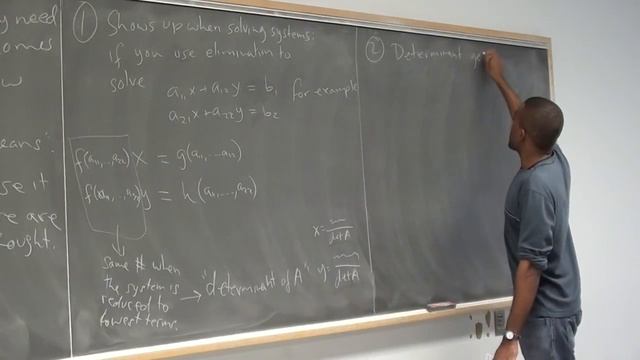 y need
comes
w
eans:
se it
re are
ought.
① Shows up when solving systems:
if you use elimination to
solve
a₁₁x + a₁₂y = b₁
for example
a₂₁x + a₂₂y = b₂
f(a₁₁,...a₂₂) x = g(a₁₁,...a₂₂)
f(a₁₁,...a₂₂) y = h(a₁₁,...,a₂₂)
same # when
the system is
reduced to
lowest terms.
→ "determinant of A"
x = /det A
y = /det A
② Determinant ge